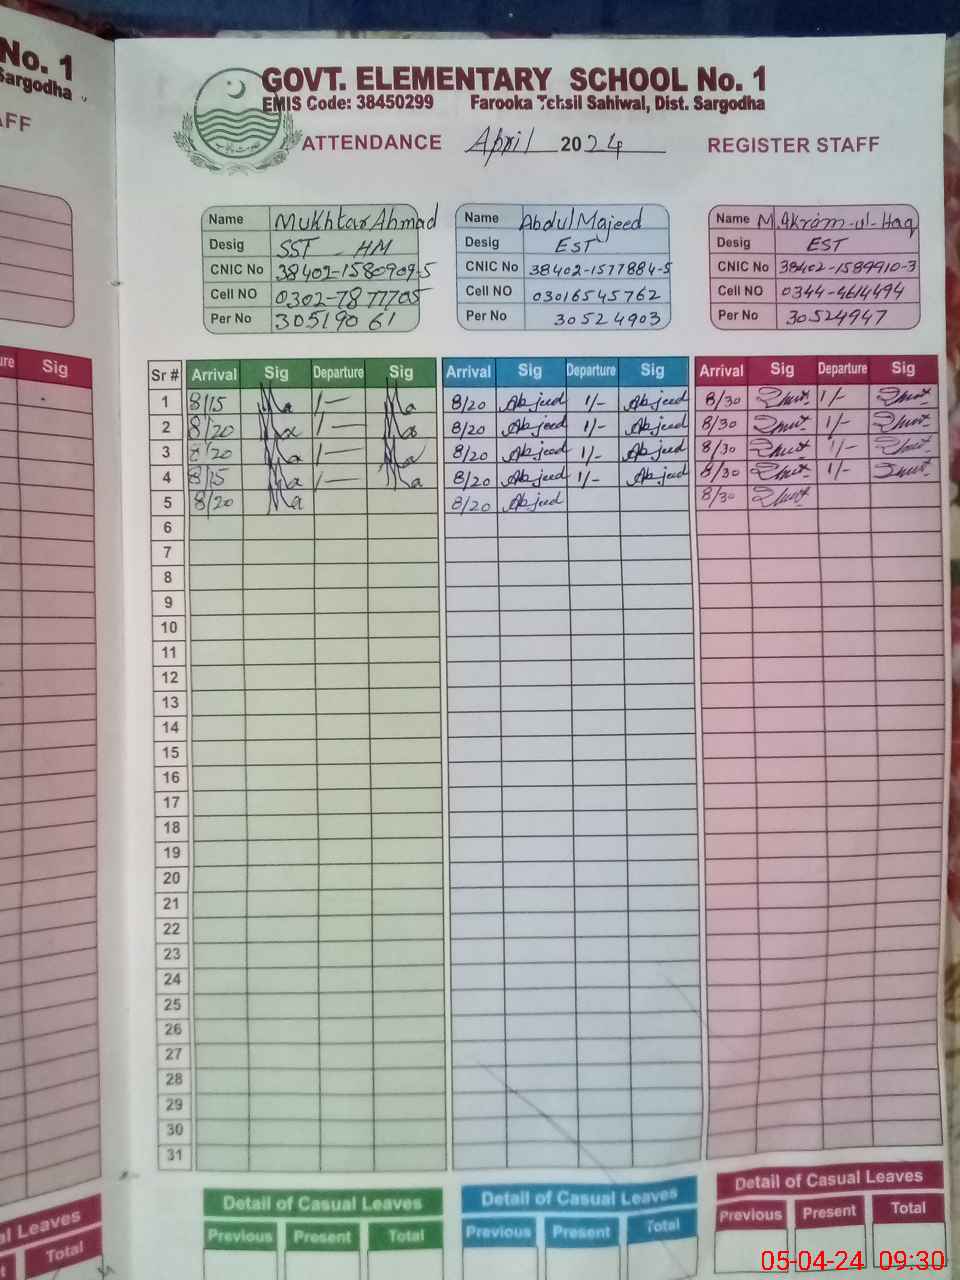 No. 1
Sargodha
AFF
ure Sig
al Leaves
t Total
GOVT. ELEMENTARY SCHOOL No. 1
EMIS Code: 38450299 Farooka Tehsil Sahiwal, Dist. Sargodha
ATTENDANCE April 2024 REGISTER STAFF
Name Mukhtar Ahmad
Desig SST - HM
CNIC No 38402-1580909-5
Cell NO 0302-7877705
Per No 30519061
Name Abdul Majeed
Desig EST
CNIC No 38402-1577884-5
Cell NO 03016545762
Per No 30524903
Name M.Akram-ul-Haq
Desig EST
CNIC No 38402-1589910-3
Cell NO 0344-4614494
Per No 30524947
Sr # Arrival Sig Departure Sig Arrival Sig Departure Sig Arrival Sig Departure Sig
1 8/15 Ma 1/- Ma 8/20 Abjeed 1/- Abjeed 8/30 1/-
2 8/20 Ma 1/- Ma 8/20 Abjeed 1/- Abjeed 8/30 1/-
3 8/20 Ma 1/- Ma 8/20 Abjeed 1/- Abjeed 8/30 1/-
4 8/15 Ma 1/- Ma 8/20 Abjeed 1/- Abjeed 8/30 1/-
5 8/20 Ma 8/20 Abjeed 8/30
6
7
8
9
10
11
12
13
14
15
16
17
18
19
20
21
22
23
24
25
26
27
28
29
30
31
Detail of Casual Leaves
Previous Present Total
Detail of Casual Leaves
Previous Present Total
Detail of Casual Leaves
Previous Present Total
05-04-24 09:30